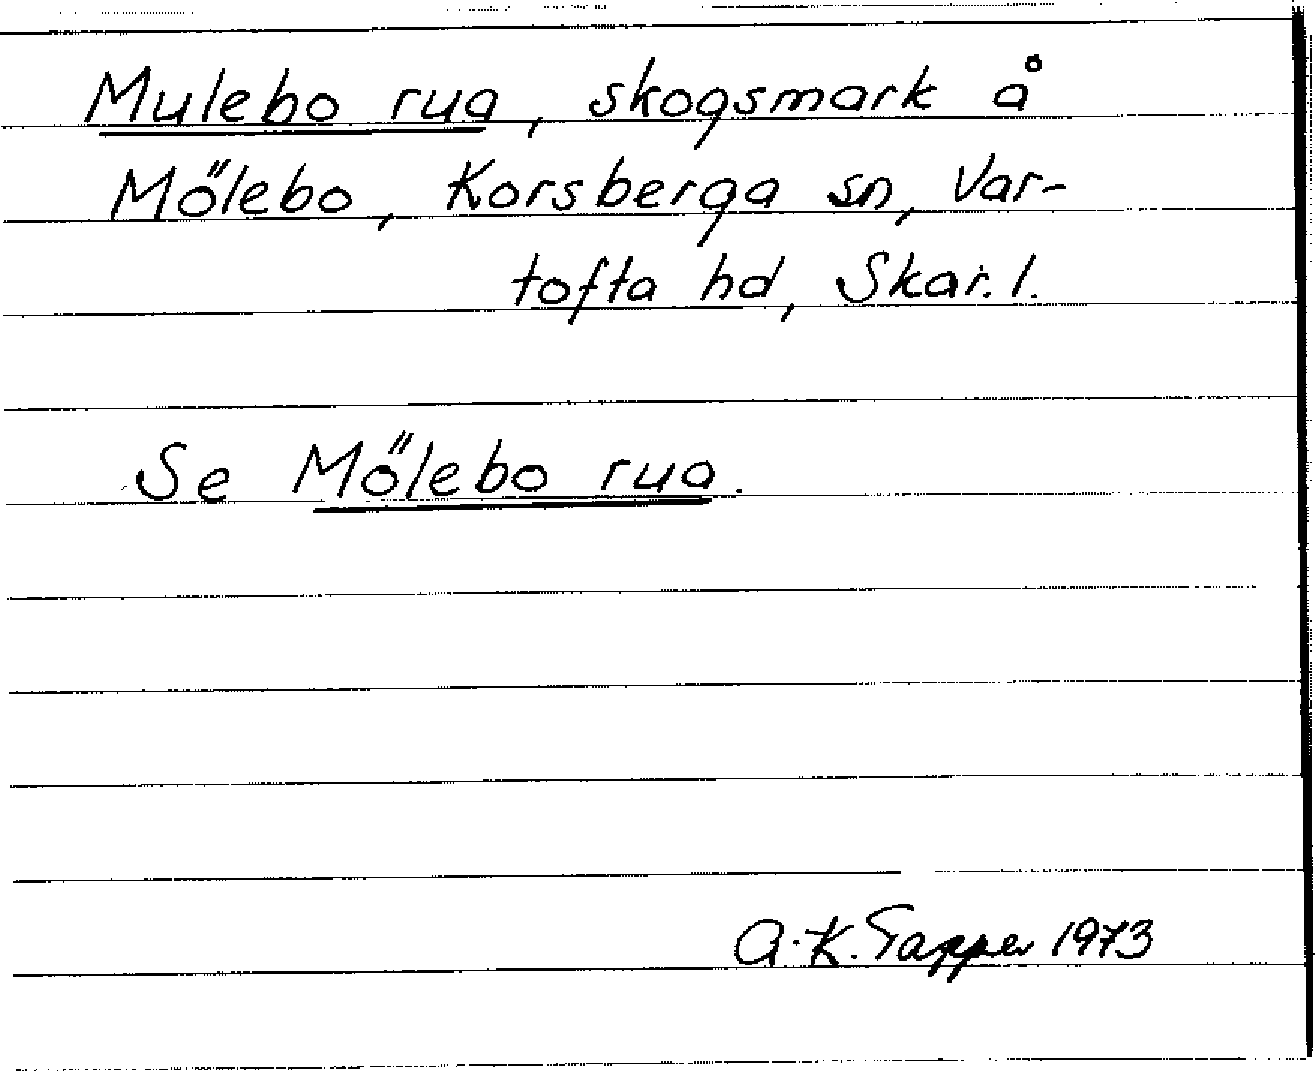 Mulebo rua, skogsmark å
Mőlebo, Korsberga sn, Var-
tofta hd, Skar. l.
Se Mőlebo rua.
A.-K. Tapper 1973